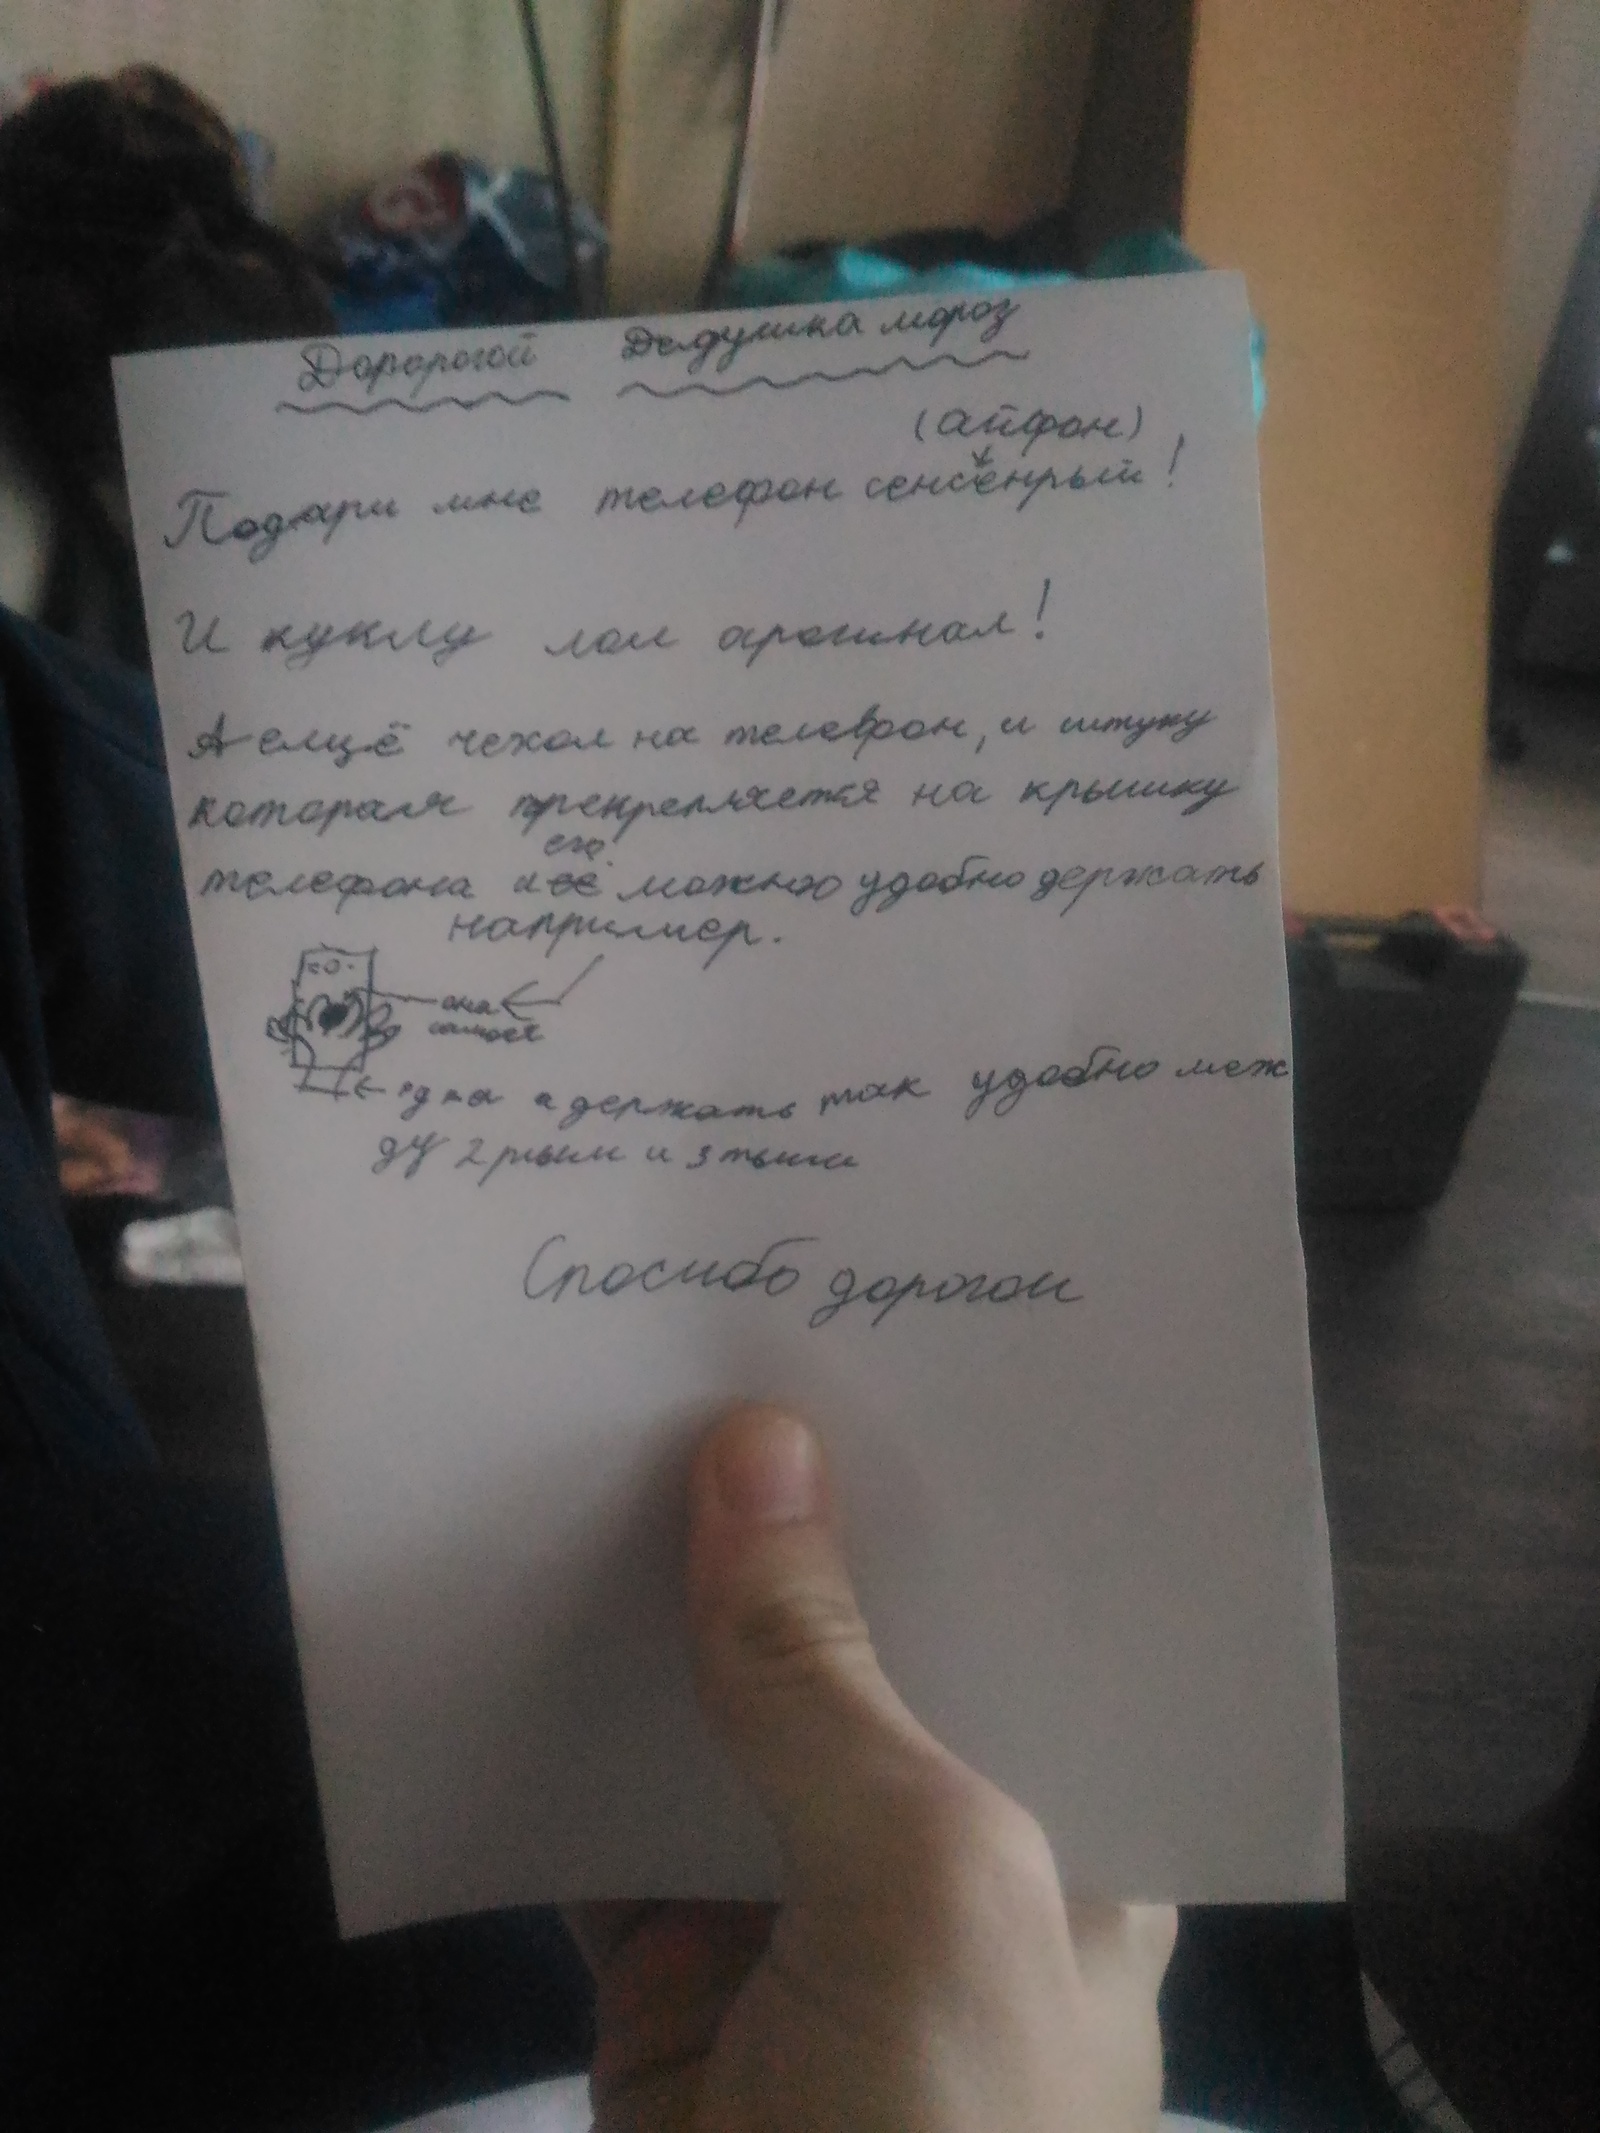 Доророгой Дедушка мороз
(айфон)
Подари мне телефон сенсенрый!
И куклу лол орогинал!
А елцё чехол на телефон, и штуку
которая прекрепляется на крышку
его.
телефона и можноо удобно держать
например.
она
самоея
една и держать так удобно меж
ду 2 рым и 3 тьим
Спосибо дорогои